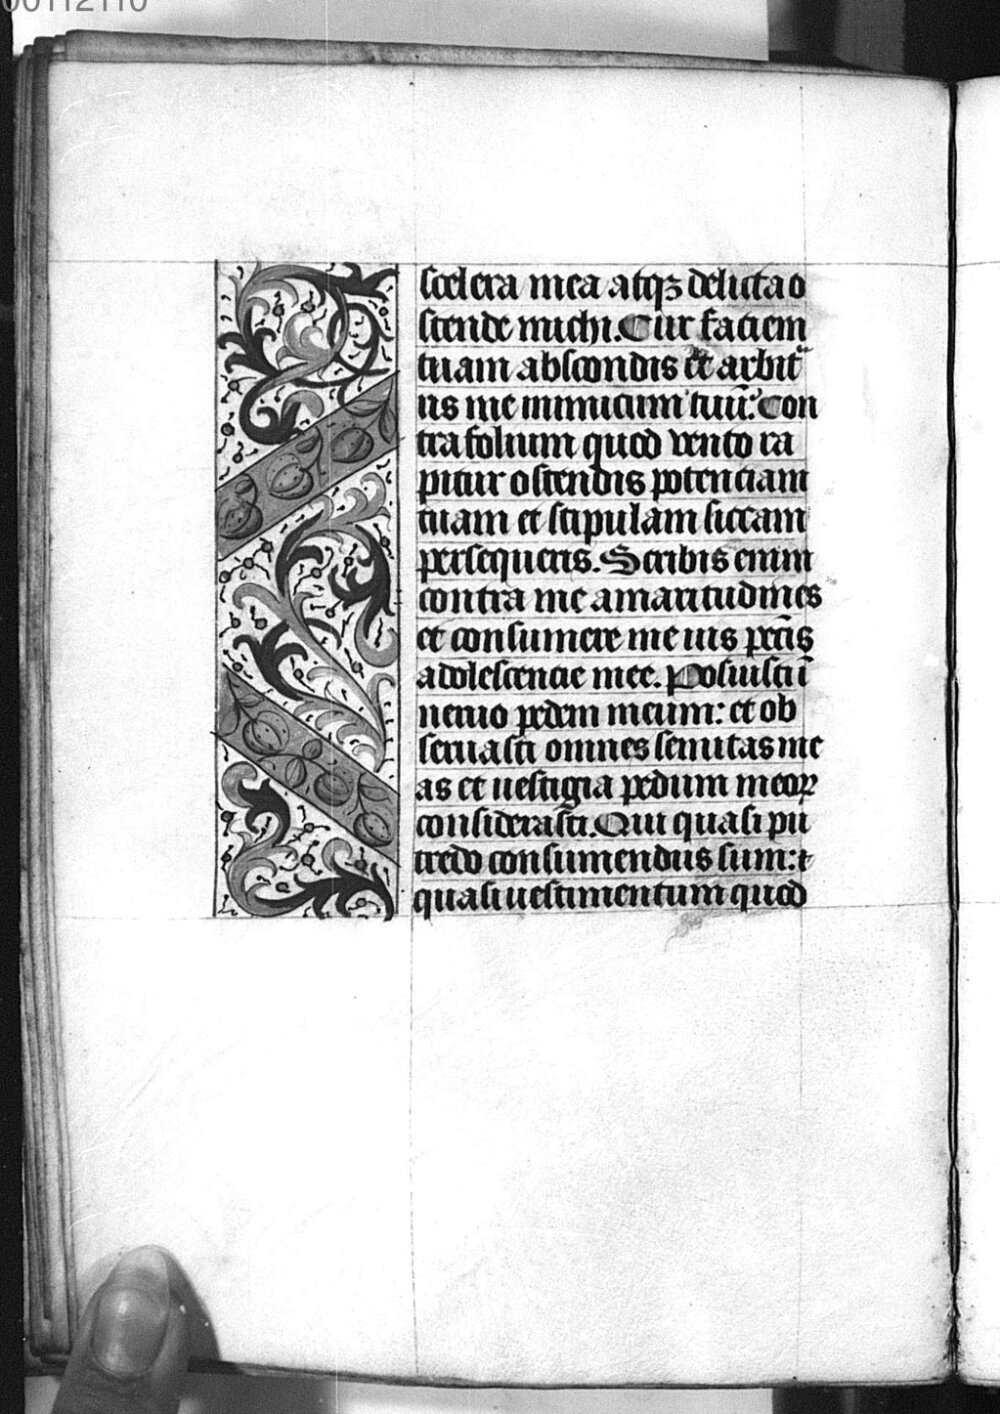 00112110
scelera mea atqꝫ delicta o
stende michi. Cur faciem
tuam abscondis et arbitᵃ
ris me inimicum tuū. Con
tra folium quod vento ra
pitur ostendis potenciam
tuam et stipulam siccam
persequeris. Scribis enim
contra me amaritudines
et consumere me uis pctīs
adolescencie mee. Posuisti ī
neruo pedem meum: et ob
seruasti omnes semitas me
as et uestigia pedum meoꝝ
considerasti. Qui quasi pu
tredo consumendus sum: ⁊
quasi uestimentum quod